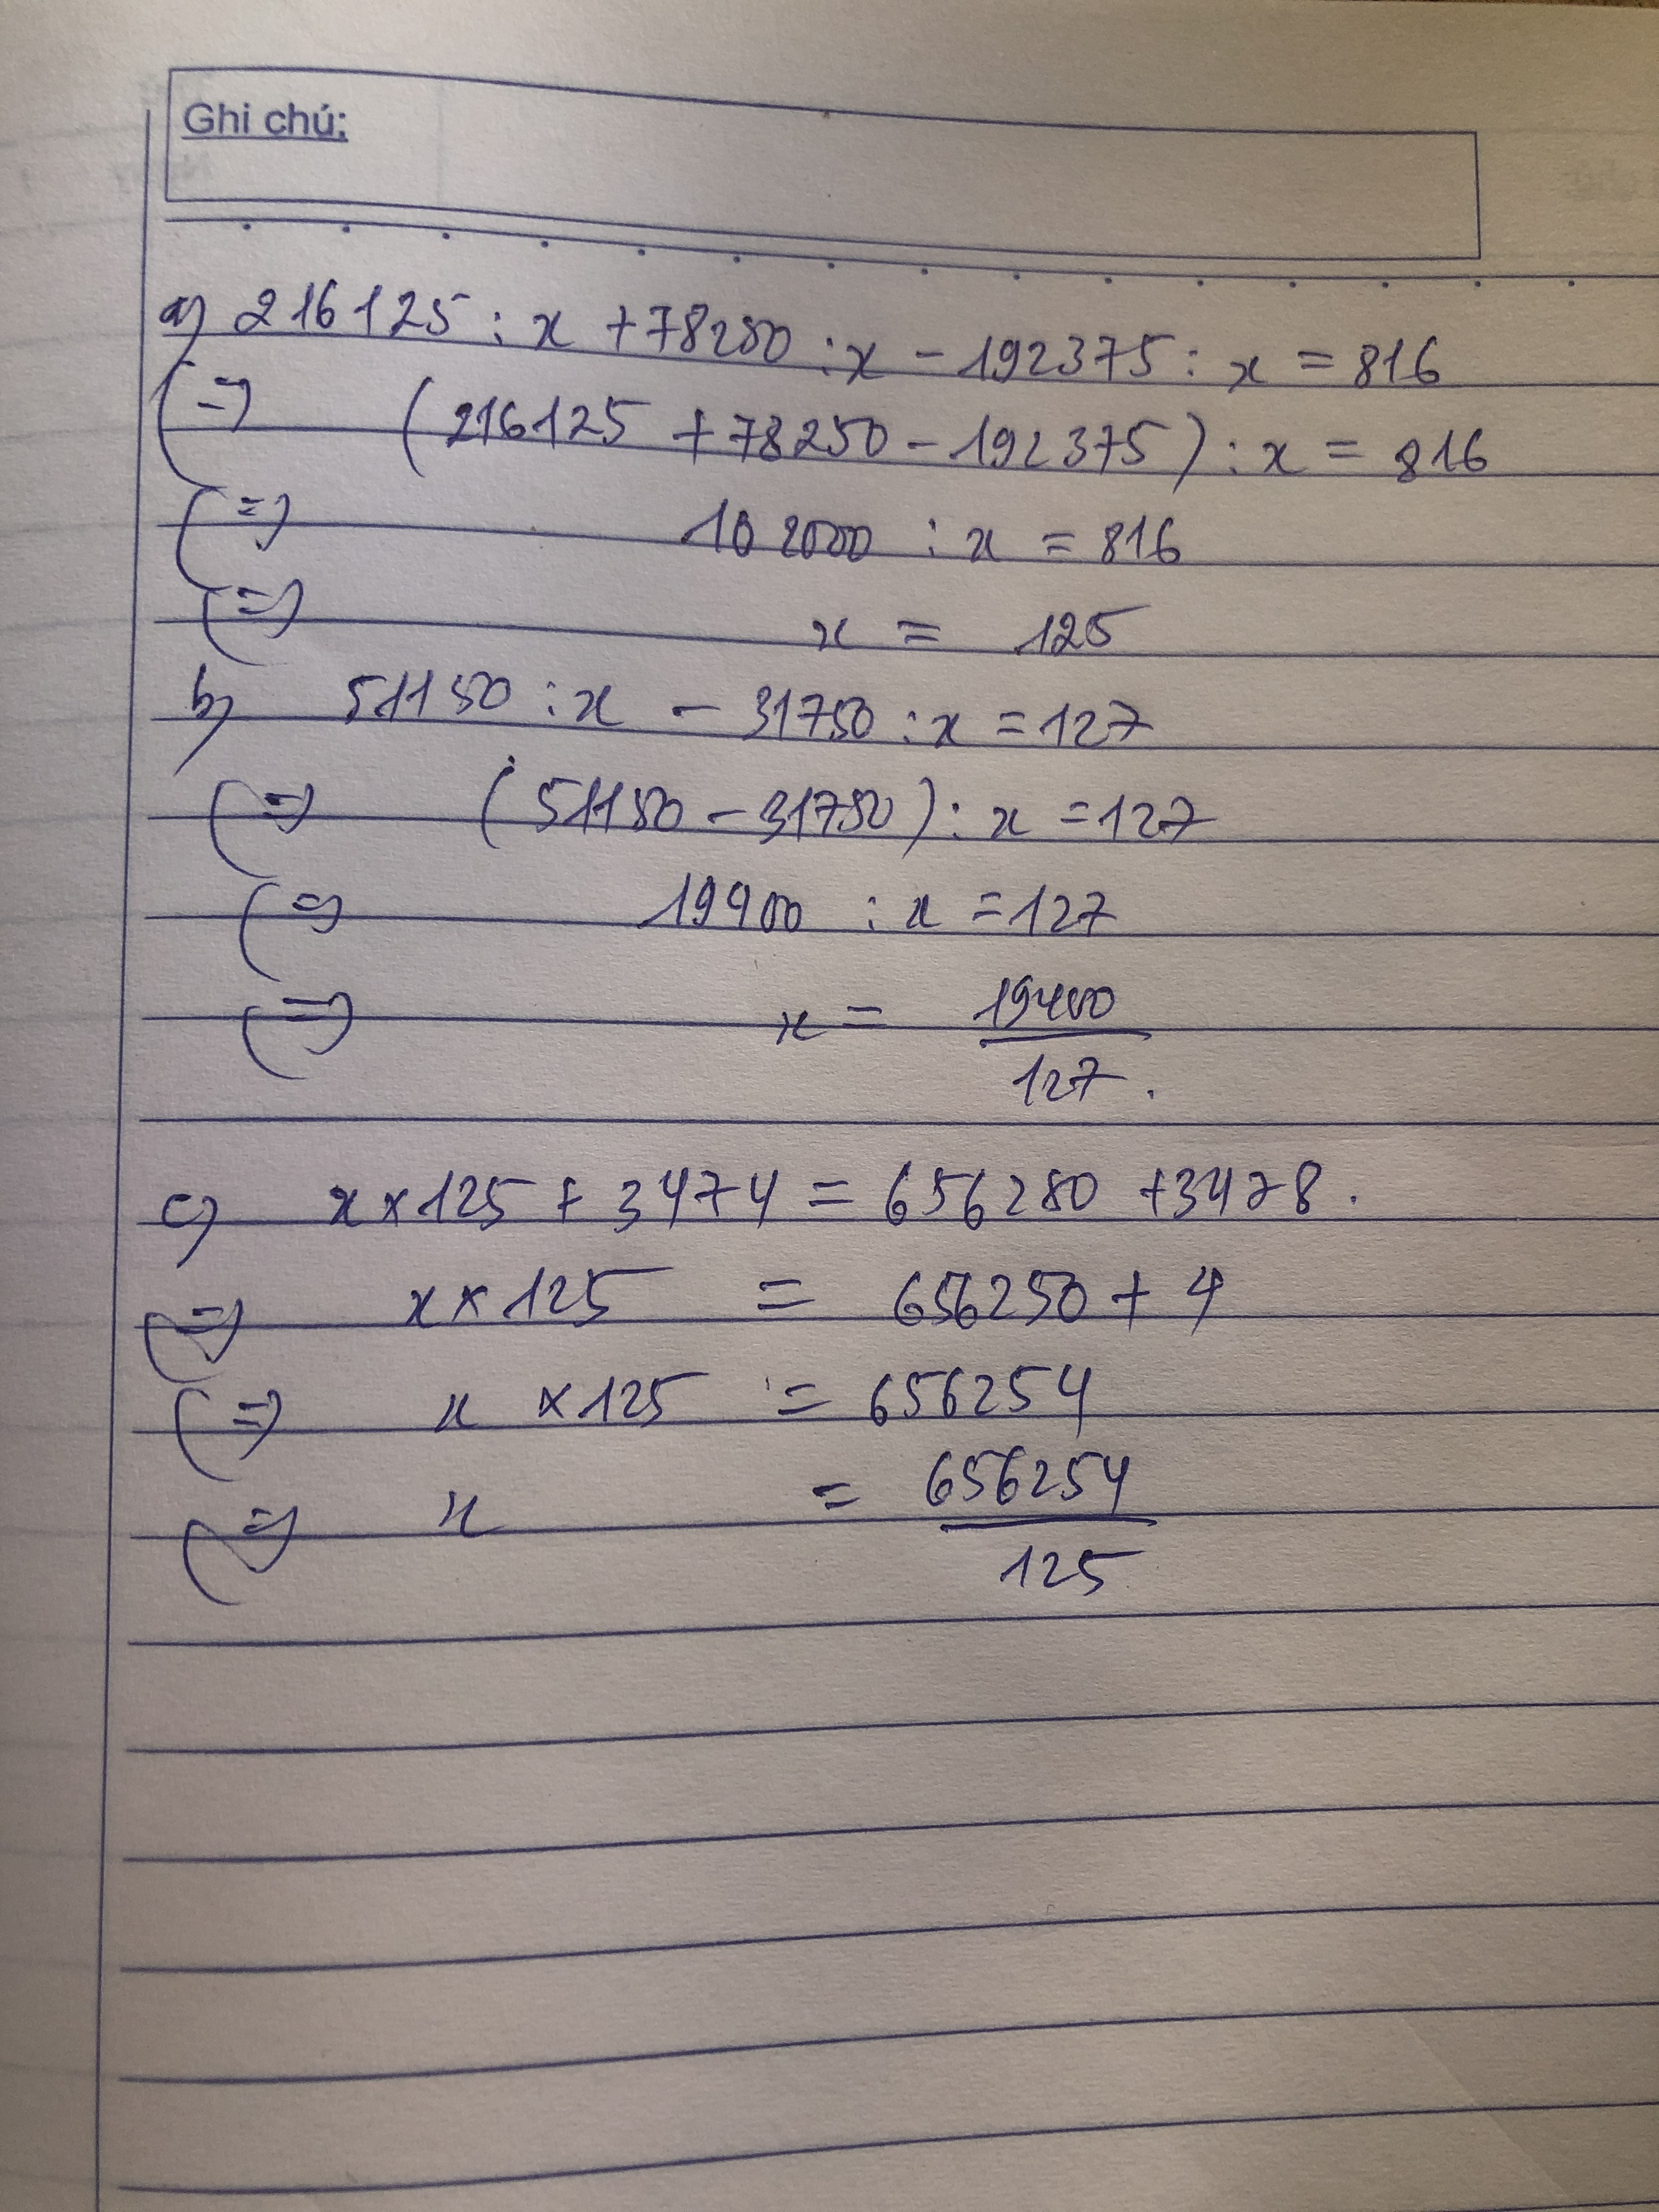 Ghi chú:
a) 216125 : x + 78250 : x - 192375 : x = 816
(=) (216125 + 78250 - 192375) : x = 816
(=) 102000 : x = 816
(=) x = 125
b) 51150 : x - 31750 : x = 127
(=) (51150 - 31750) : x = 127
(=) 19400 : x = 127
(=) x = 19400
127.
c) x × 125 + 3474 = 656250 + 3478.
(=) x × 125 = 656250 + 4
(=) x × 125 = 656254
(=) x = 656254
125